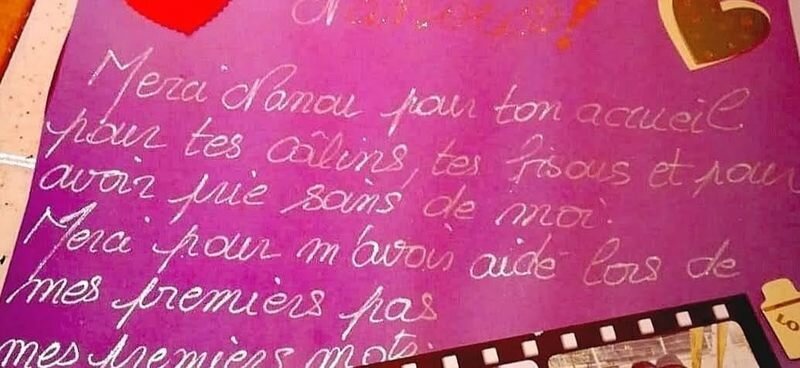 Nanou !
Merci Nanou pour ton accueil
pour tes câlins, tes bisous et pour
avoir prie soins de moi.
Merci pour m'avois aidé lors de
mes premiers pas
mes premiers mots
LO